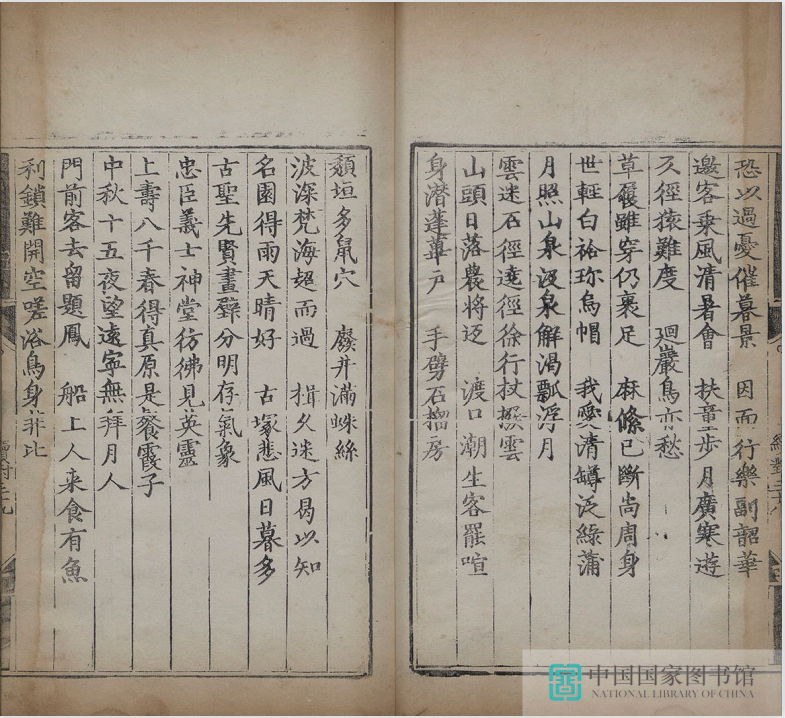 恐以過憂催暮景　因而行樂副韶華
邀客乘風清暑會　扶童步月廣寒遊
仄徑猿難度　廻巖鳥亦愁
草履雖穿仍裹足　麻絛已斷尚周身
世輕白袷珎烏帽　我愛清罇泛綠蒲
月照山泉汲泉解渴瓢浮月
雲迷石徑遶徑徐行杖撥雲
山頭日落農將迈　渡口潮生客罷喧
身潜蓬蓽戶　手劈石榴房
頽垣多鼠穴　廢井滿蛛絲
波深梵海超而過　楫久迷方曷以知
名園得雨天晴好　古塚悲風日暮多
古聖先賢畫壁分明存氣象
忠臣義士神堂彷彿見英靈
上壽八千春得真原是餐霞子
中秋十五夜望遠寧無拜月人
門前客去留題鳳　船上人来食有魚
利鎖難開空嗟浴鳥身非比
中国国家图书馆
NATIONAL LIBRARY OF CHINA